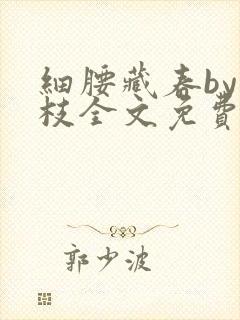 細腰藏春by
枝全文免費
郭少波